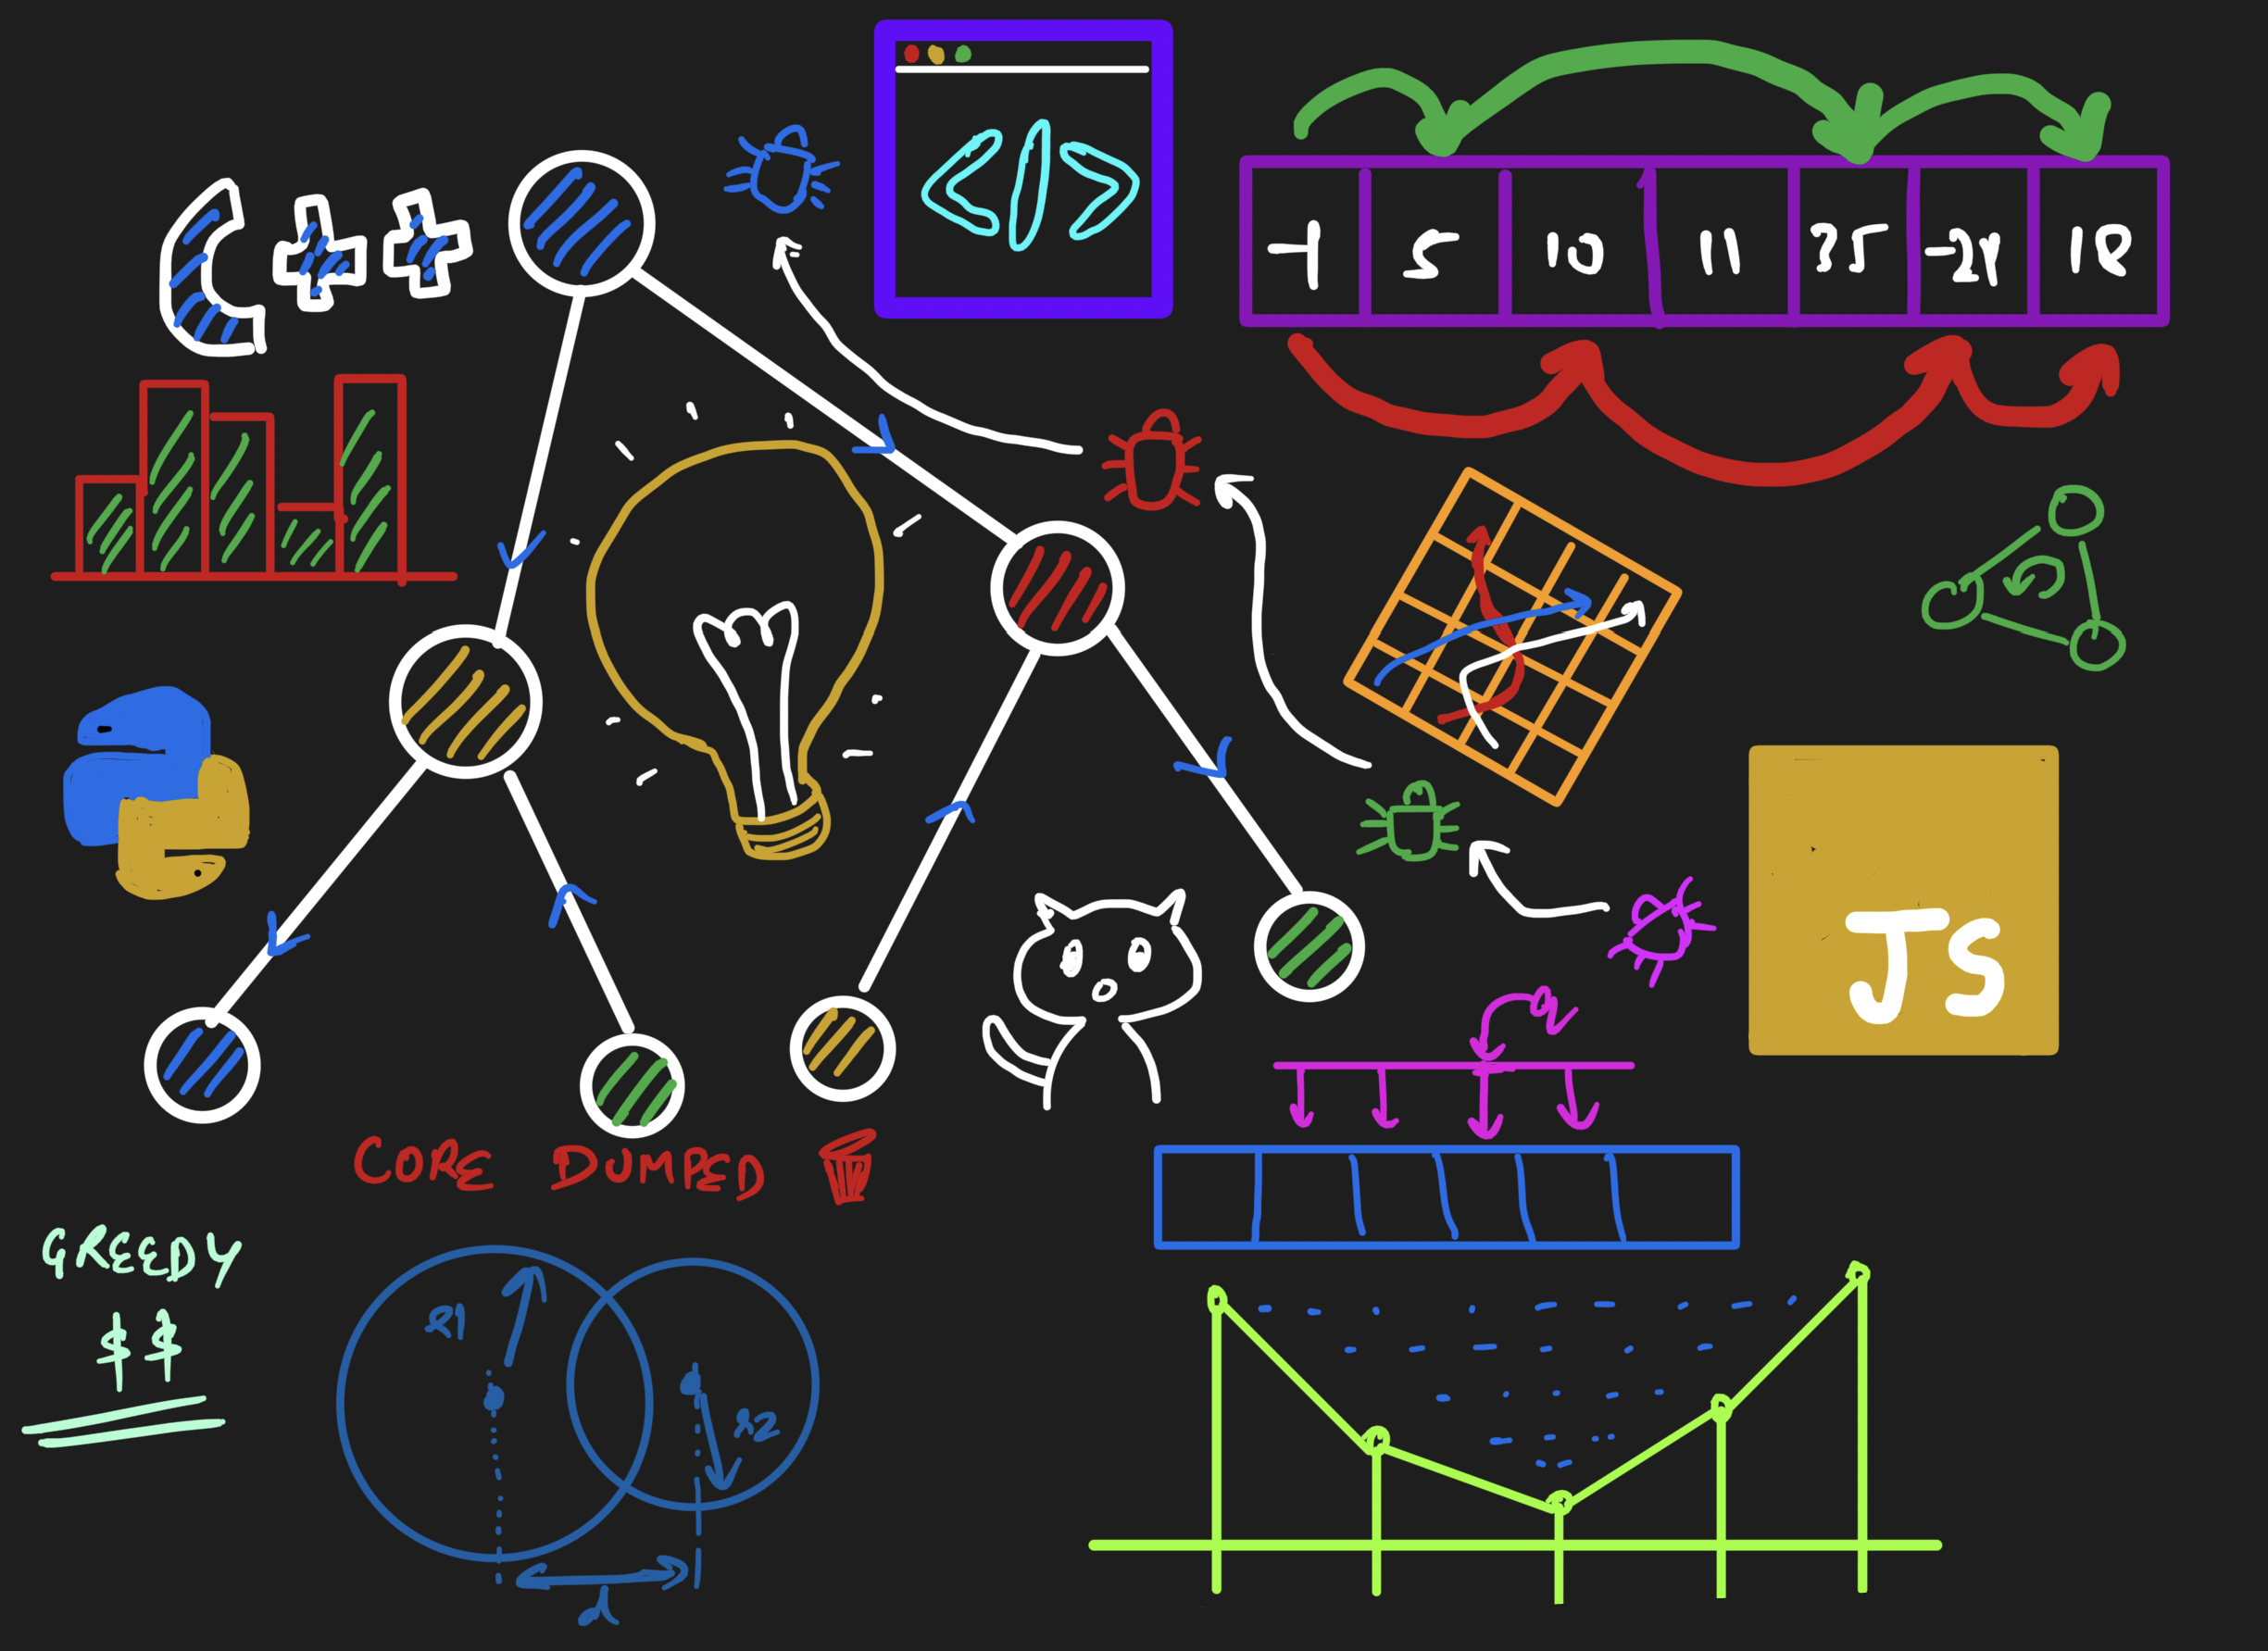 C++
</>
-1 5 10 11 -24 18
JS
CORE DUMPED
GREEDY
$$
r1
r2
d